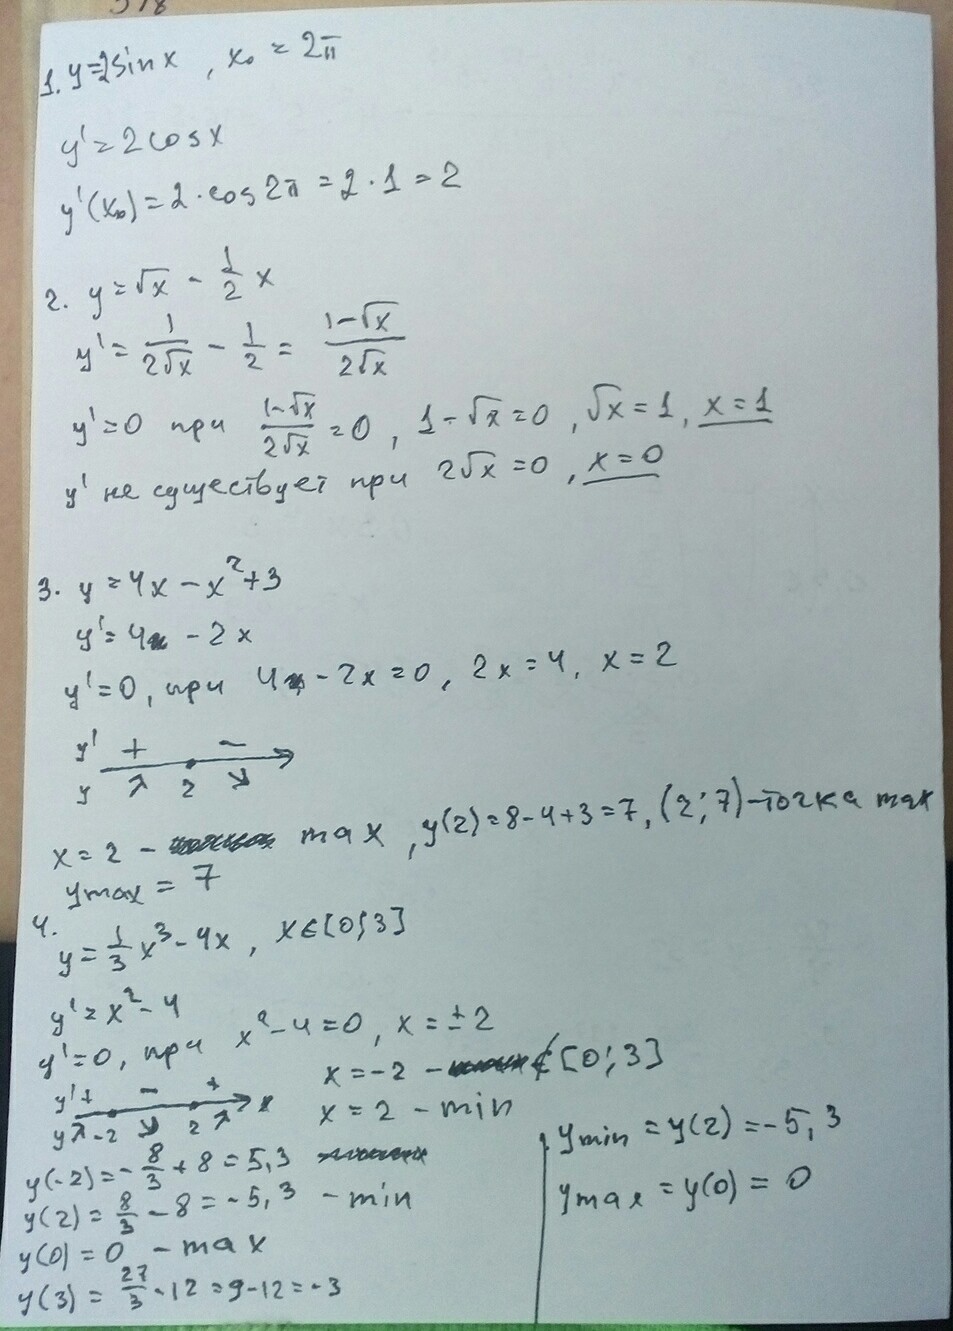 578
1. y=2sinx, x₀ = 2π
y'=2cosx
y'(x₀)=2·cos2π=2·1=2
2. y=√x - 1/2 x
y'= 1/(2√x) - 1/2 = (1-√x)/(2√x)
y'=0 при (1-√x)/(2√x)=0, 1-√x=0, √x=1, x=1
y' не существует при 2√x=0, x=0
3. y=4x-x²+3
y'=4-2x
y'=0, при 4-2x=0, 2x=4, x=2
y' + -
y ↗ 2 ↘
x=2 - max, y(2)=8-4+3=7, (2;7)-точка max
ymax = 7
4.
y= 1/3 x³-4x, x∈[0;3]
y'=x²-4
y'=0, при x²-4=0, x=±2
x=-2 - ∉[0;3]
y'+ - + x
y↗ -2 ↘ 2 ↗
x=2 - min
y(-2)=-8/3+8=5,3
y(2)=8/3-8=-5,3 - min
y(0)=0 - max
y(3)=27/3-12=9-12=-3
ymin=y(2)=-5,3
ymax=y(0)=0